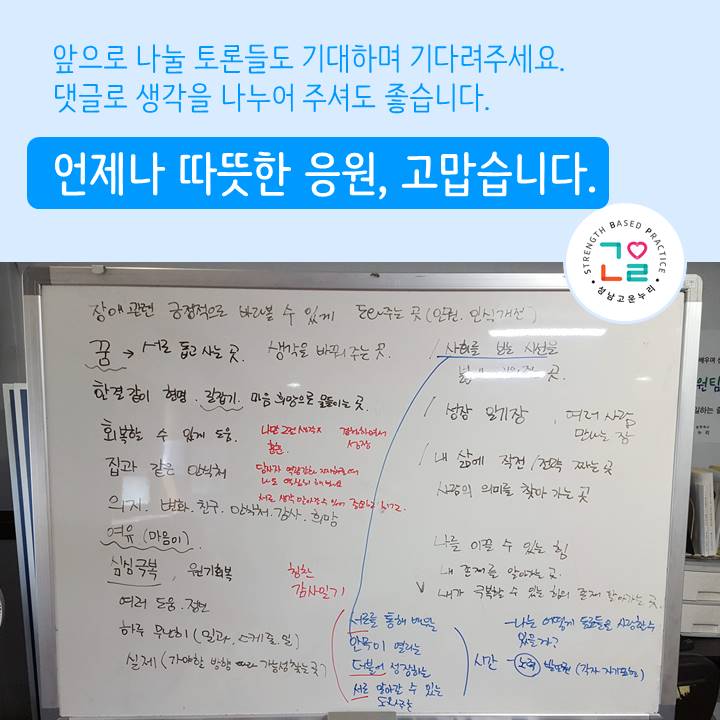 앞으로 나눌 토론들도 기대하며 기다려주세요.
댓글로 생각을 나누어 주셔도 좋습니다.
언제나 따뜻한 응원, 고맙습니다.
STRENGTH BASED PRACTICE
성남고운누리
장애관련 긍정적으로 바라볼 수 있게 도와주는 곳 (인권. 인식개선)
꿈 → 서로 돕고 사는 곳. 생각을 바꿔 주는 곳.
한결같이 형명. 길잡기. 마음 희망으로
회복할 수 있게 도움.
집과 같은 안식처
의지. 변화. 친구. 안식처. 감사. 희망
여유 (마음이)
심심극복, 원기회복
여러 도움.
하루 무난히 (일과, 스케줄. 일)
실제 (가야할 방향 가능성찾는곳)
나만 고면
힘듦.
성장
칭찬
감사일기
/ 사회를 보는 시선을
곳.
/ 성장 일기장, 여러 사람
만나는 장
/ 내 삶에 작전/전략 짜는 곳
사랑의 의미를 찾아 가는 곳
나를 이끌 수 있는 힘
내 존재를 알아가는 곳.
내가 극복할 수 있는 힘의 존재 알아가는 곳.
서로를 통해 배움을
안목이 열리는
더불어 성장하는
서로 알아갈 수 있는
시간
- 나는 어떻게 동료들을 사랑할 수
있을까?
- 노력 (각자